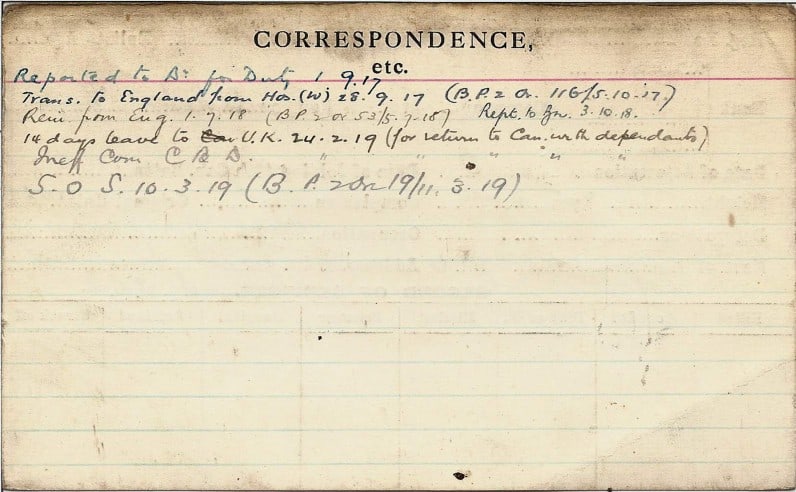 CORRESPONDENCE,
etc.
Reported to Bn for Duty 1 9.17
Trans. to England from Hos. (W) 28.9.17 (B.P.2 Or. 116/5.10.17.)
Rein from Eng. 1.7.18 (B.P.2 Or 53/5.7.18) Rept. to 3.10.18.
14 days leave to U.K. 24.2.19 (for return to Can. with dependants)
Ineff Com. C B D. " " " " "
S.O S. 10.3.19 (B.P.2 Or 19/11.3.19)